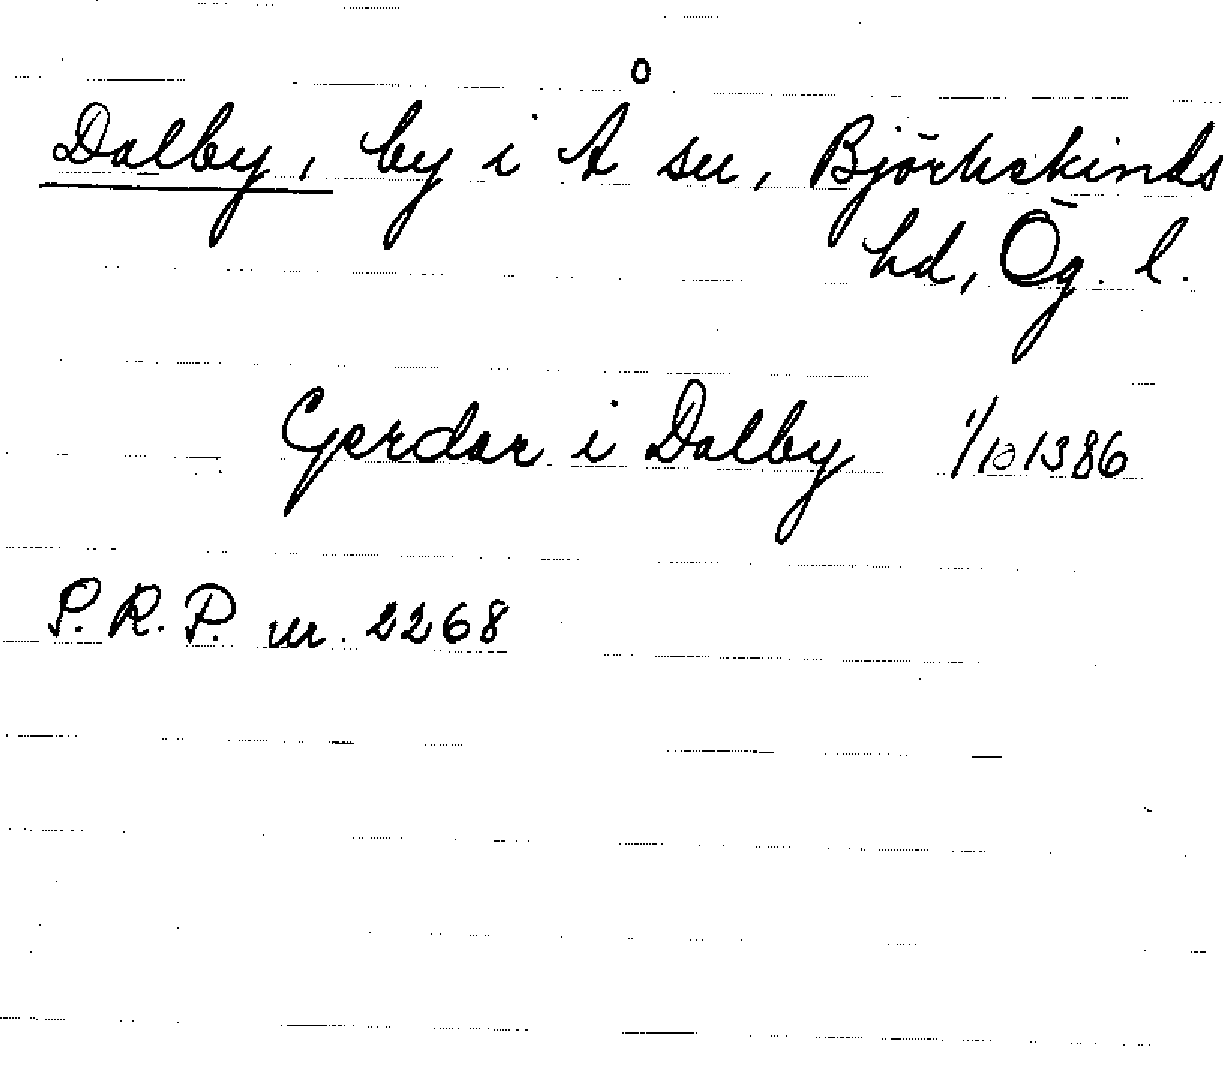 Dalby, by i Å sn, Björkekinds
hd, Ög. l.
Gerdar i Dalby 1/10 1386
P.R.P. nr. 2268